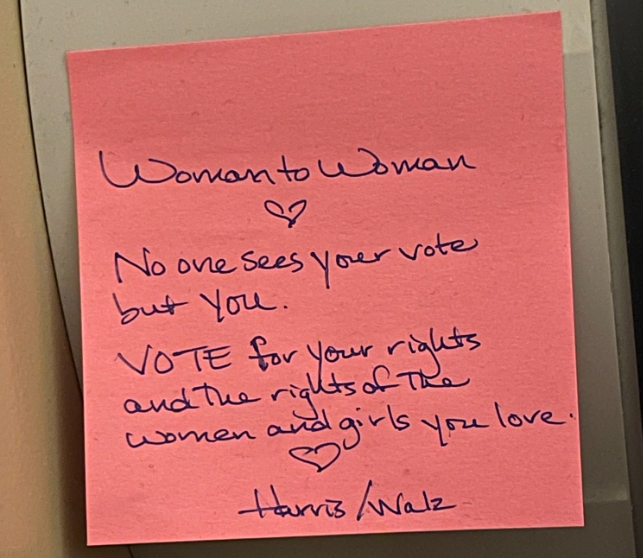 Woman to Woman
♡
No one sees your vote
but you.
VOTE for your rights
and the rights of the
women and girls you love.
♡
Harris/Walz